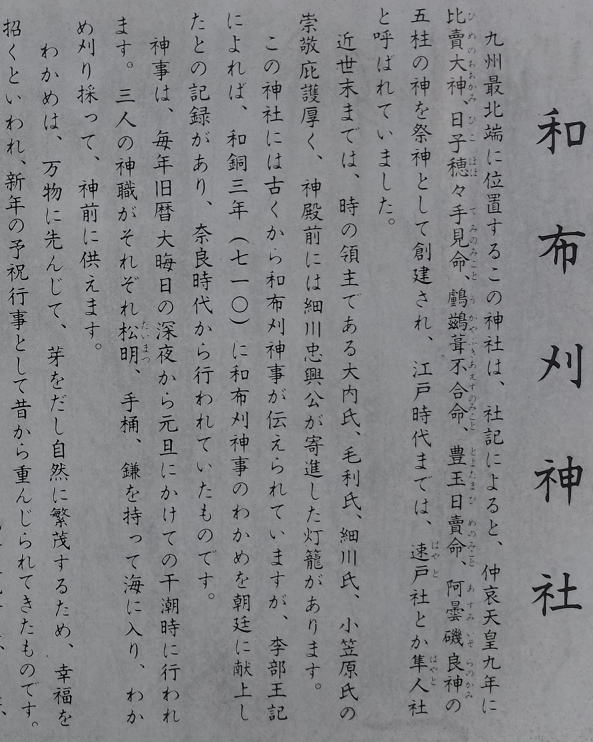 和布刈神社
九州最北端に位置するこの神社は、社記によると、仲哀天皇九年に
比賣大神、日子穂々手見命、鸕鷀葺不合命、豊玉日賣命、阿曇磯良神の
五柱の神を祭神として創建され、江戸時代までは、速戸社とか隼人社
と呼ばれていました。
近世末までは、時の領主である大内氏、毛利氏、細川氏、小笠原氏の
崇敬庇護厚く、神殿前には細川忠興公が寄進した灯籠があります。
この神社には古くから和布刈神事が伝えられていますが、李部王記
によれば、和銅三年（七一〇）に和布刈神事のわかめを朝廷に献上し
たとの記録があり、奈良時代から行われていたものです。
神事は、毎年旧暦大晦日の深夜から元旦にかけての干潮時に行われ
ます。三人の神職がそれぞれ松明、手桶、鎌を持って海に入り、わか
め刈り採って、神前に供えます。
わかめは、万物に先んじて、芽をだし自然に繁茂するため、幸福を
招くといわれ、新年の予祝行事として昔から重んじられてきたものです。